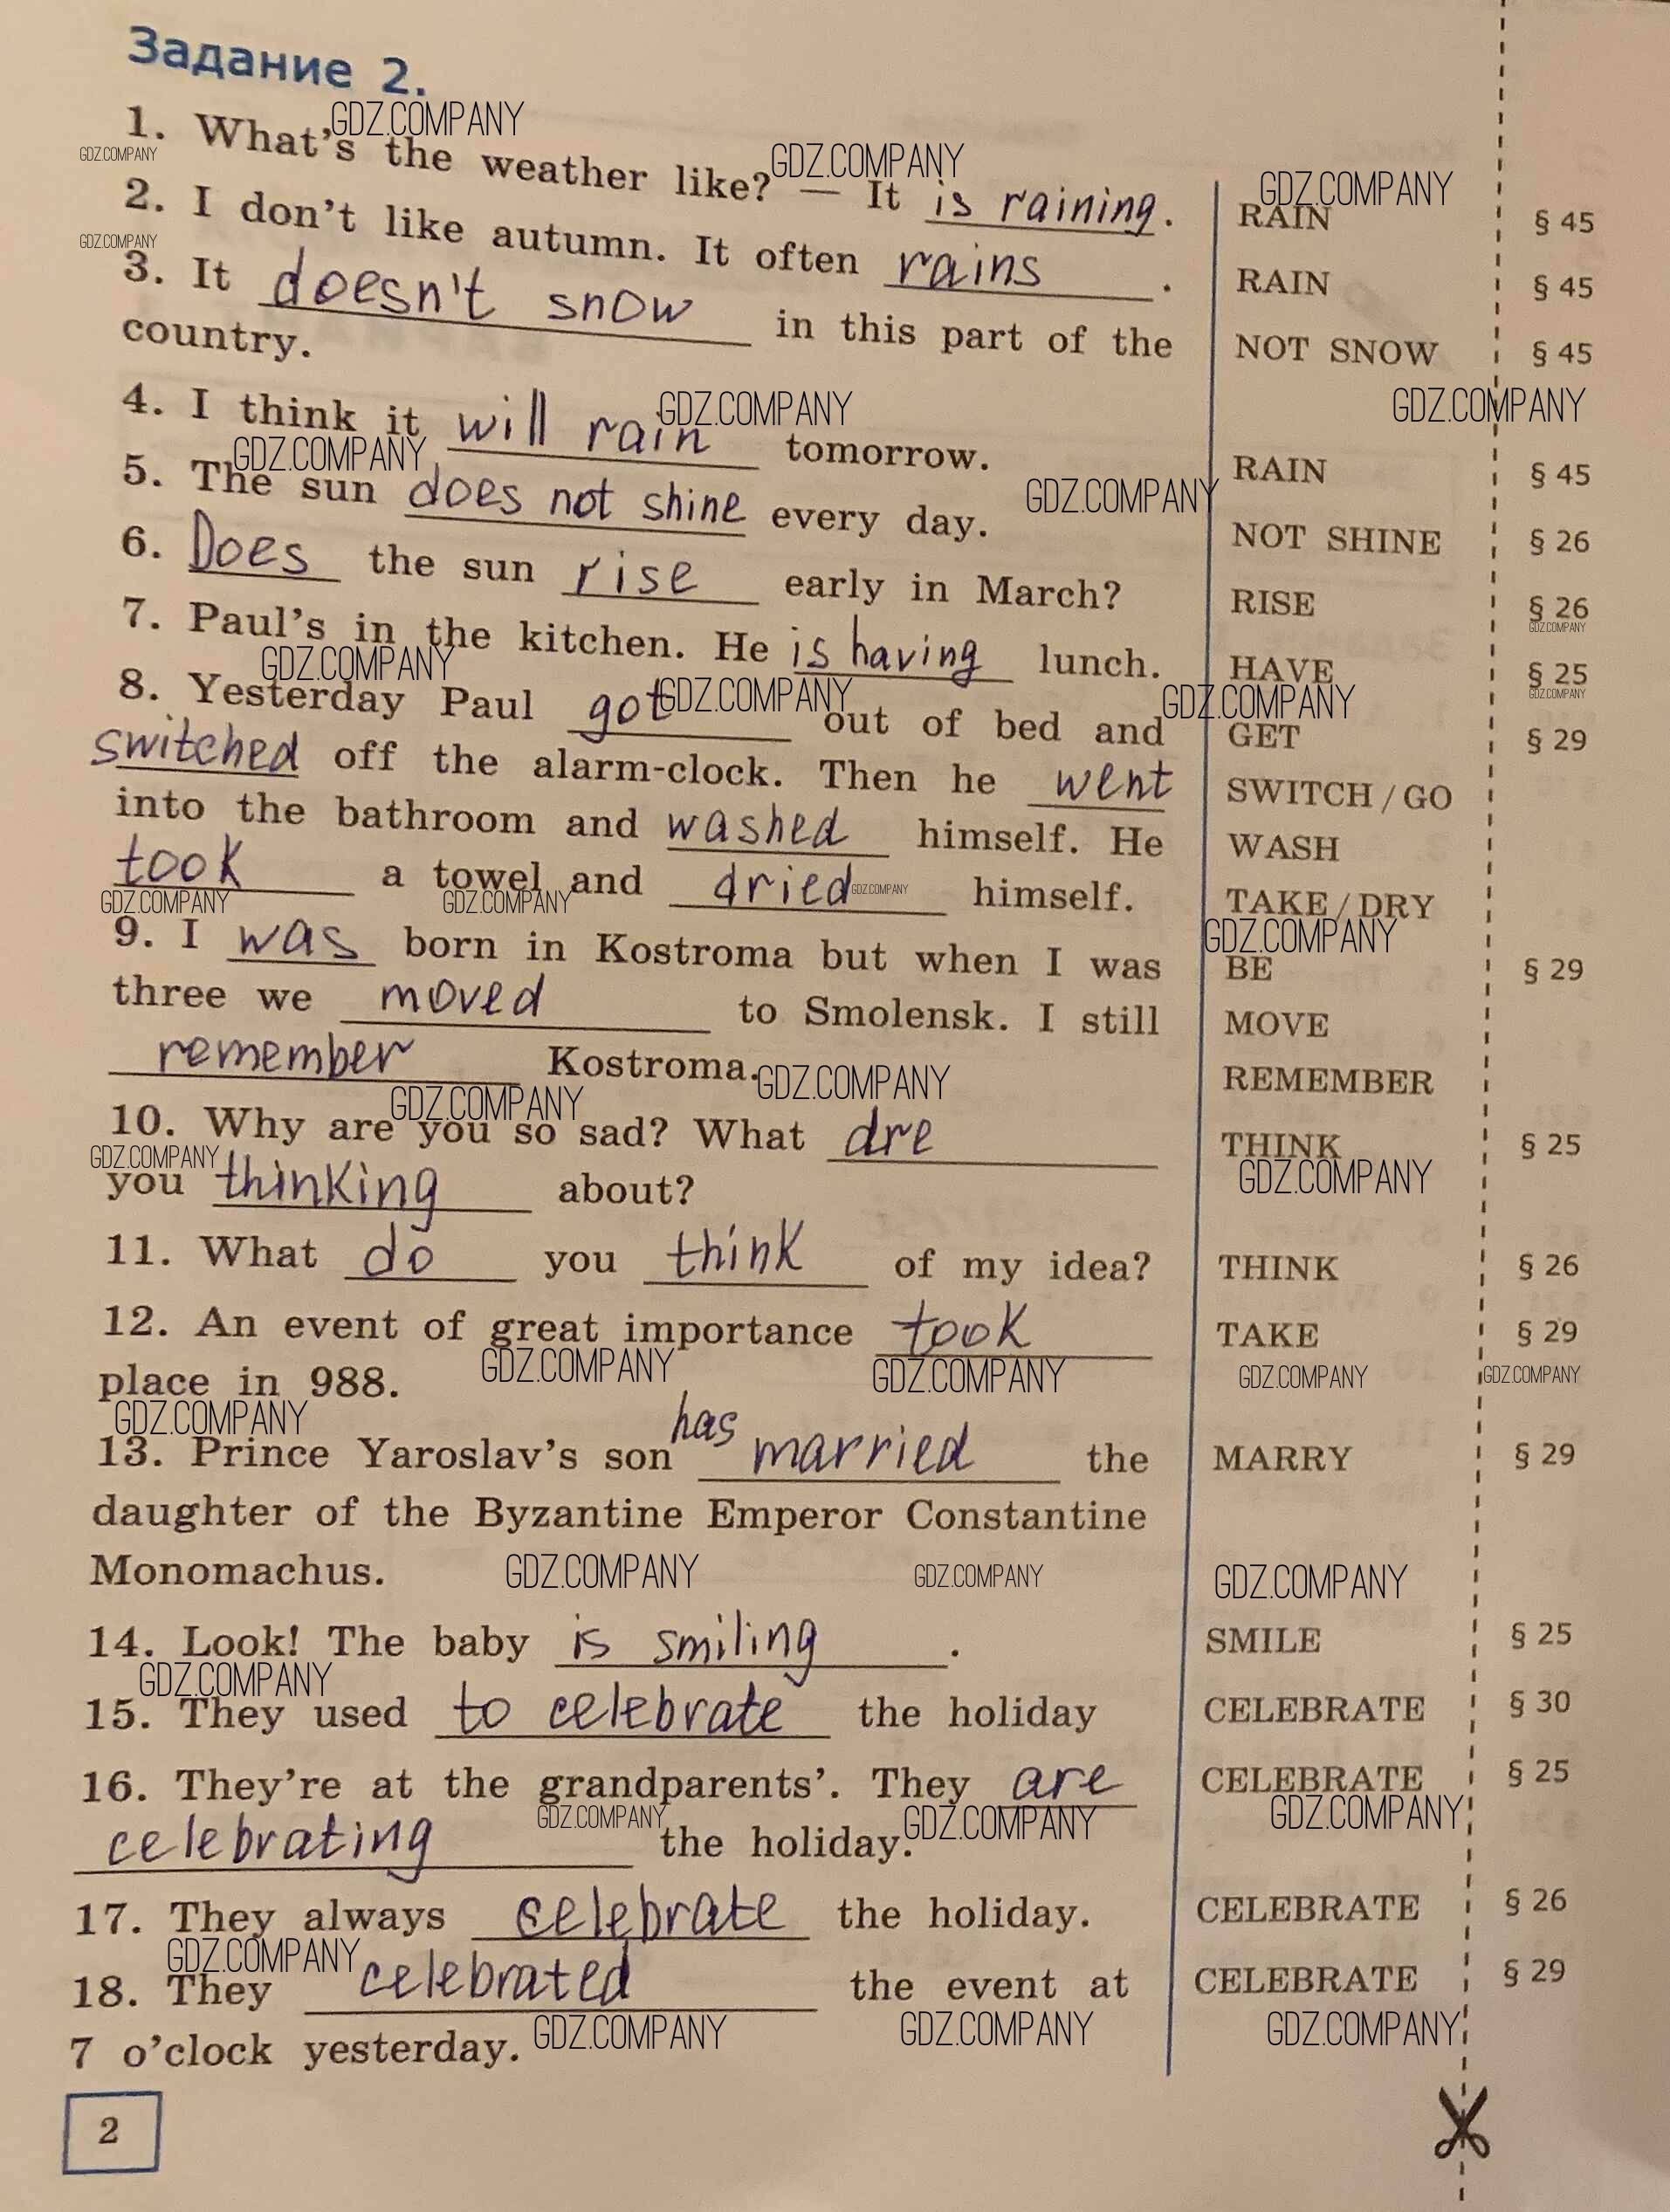 Задание 2.
1. What's the weather like? — It is raining. RAIN § 45
2. I don't like autumn. It often rains. RAIN § 45
3. It doesn't snow in this part of the NOT SNOW § 45
country.
4. I think it will rain tomorrow. RAIN § 45
5. The sun does not shine every day. NOT SHINE § 26
6. Does the sun rise early in March? RISE § 26
7. Paul's in the kitchen. He is having lunch. HAVE § 25
8. Yesterday Paul got out of bed and GET § 29
switched off the alarm-clock. Then he went SWITCH / GO
into the bathroom and washed himself. He WASH
took a towel and dried himself. TAKE / DRY
9. I was born in Kostroma but when I was BE § 29
three we moved to Smolensk. I still MOVE
remember Kostroma. REMEMBER
10. Why are you so sad? What are THINK § 25
you thinking about?
11. What do you think of my idea? THINK § 26
12. An event of great importance took TAKE § 29
place in 988.
13. Prince Yaroslav's son has married the MARRY § 29
daughter of the Byzantine Emperor Constantine
Monomachus.
14. Look! The baby is smiling. SMILE § 25
15. They used to celebrate the holiday CELEBRATE § 30
16. They're at the grandparents'. They are CELEBRATE § 25
celebrating the holiday.
17. They always celebrate the holiday. CELEBRATE § 26
18. They celebrated the event at CELEBRATE § 29
7 o'clock yesterday.
2
GDZ.COMPANY